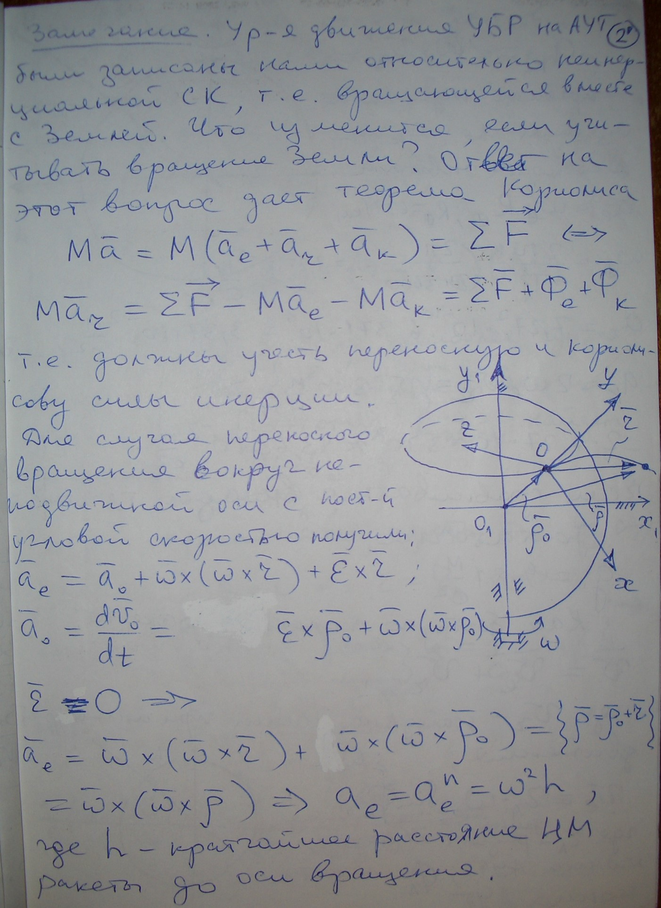 Замечание. Ур-я движения УБР на АУТ 2"
были записаны нами относительно неинер-
циальной СК, т.е. вращающейся вместе
с Землей. Что изменится, если учи-
тывать вращение Земли? Ответ на
этот вопрос дает теорема Кориолиса
Mā = M(ā_e + ā_r + ā_к) = ΣF⃗ <=>
Mā_r = ΣF⃗ − Mā_e − Mā_к = ΣF̄ + Φ̄_e + Φ̄_к
т.е. должны учесть переносную и кориоли-
сову силы инерции.
Для случая переносного
вращения вокруг не-
подвижной оси с пост-й
угловой скоростью получили:
ā_e = ā_o + ω̄×(ω̄×r̄) + ε̄×r̄ ;
ā_o = dv̄_o/dt = ε̄×ρ̄_o + ω̄×(ω̄×ρ̄_o)
y₁
y
z
O
r̄
O₁
ρ̄_o
ρ̄
x₁
x
ω
ε̄ = O ⇒
ā_e = ω̄×(ω̄×r̄) + ω̄×(ω̄×ρ̄_o) = {ρ̄ = ρ̄_o + r̄}
= ω̄×(ω̄×ρ̄) ⇒ a_e = a_e^n = ω²h ,
где h – кратчайшее расстояние ЦМ
ракеты до оси вращения.